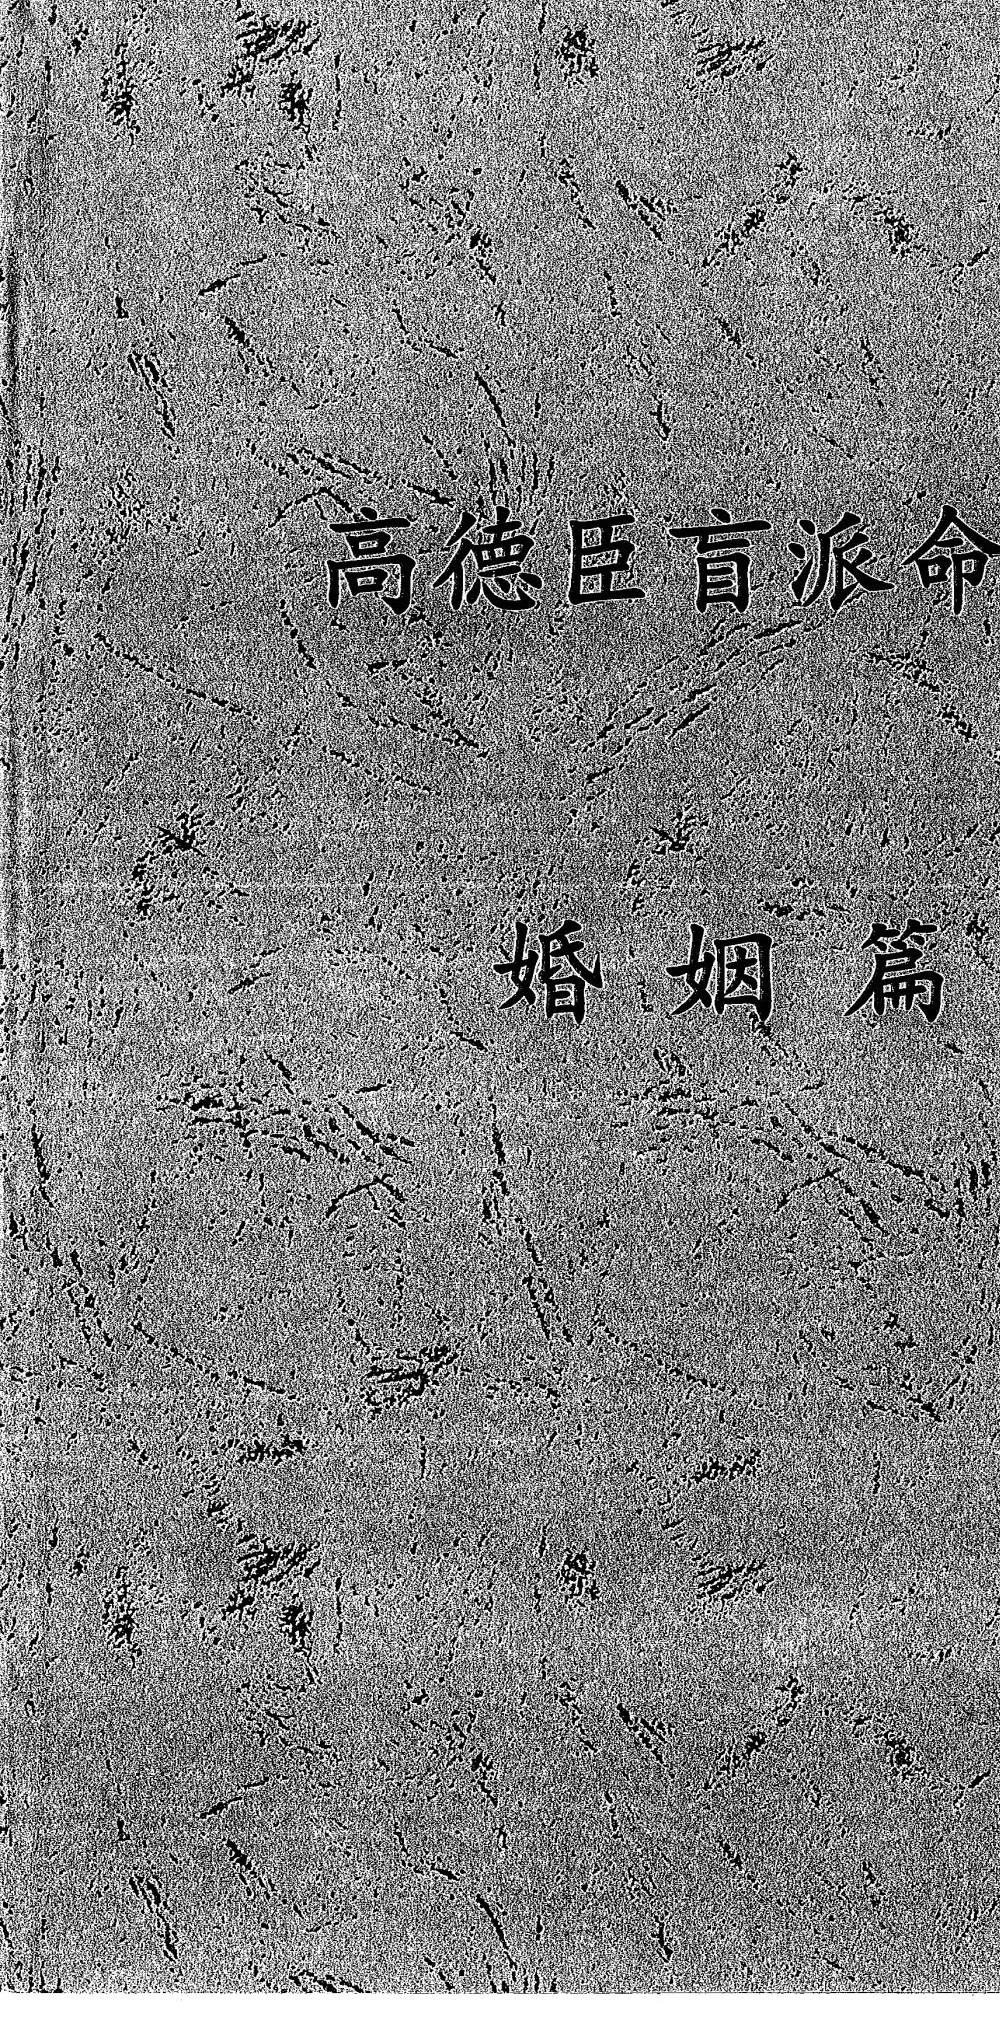 高德臣盲派命
婚姻篇